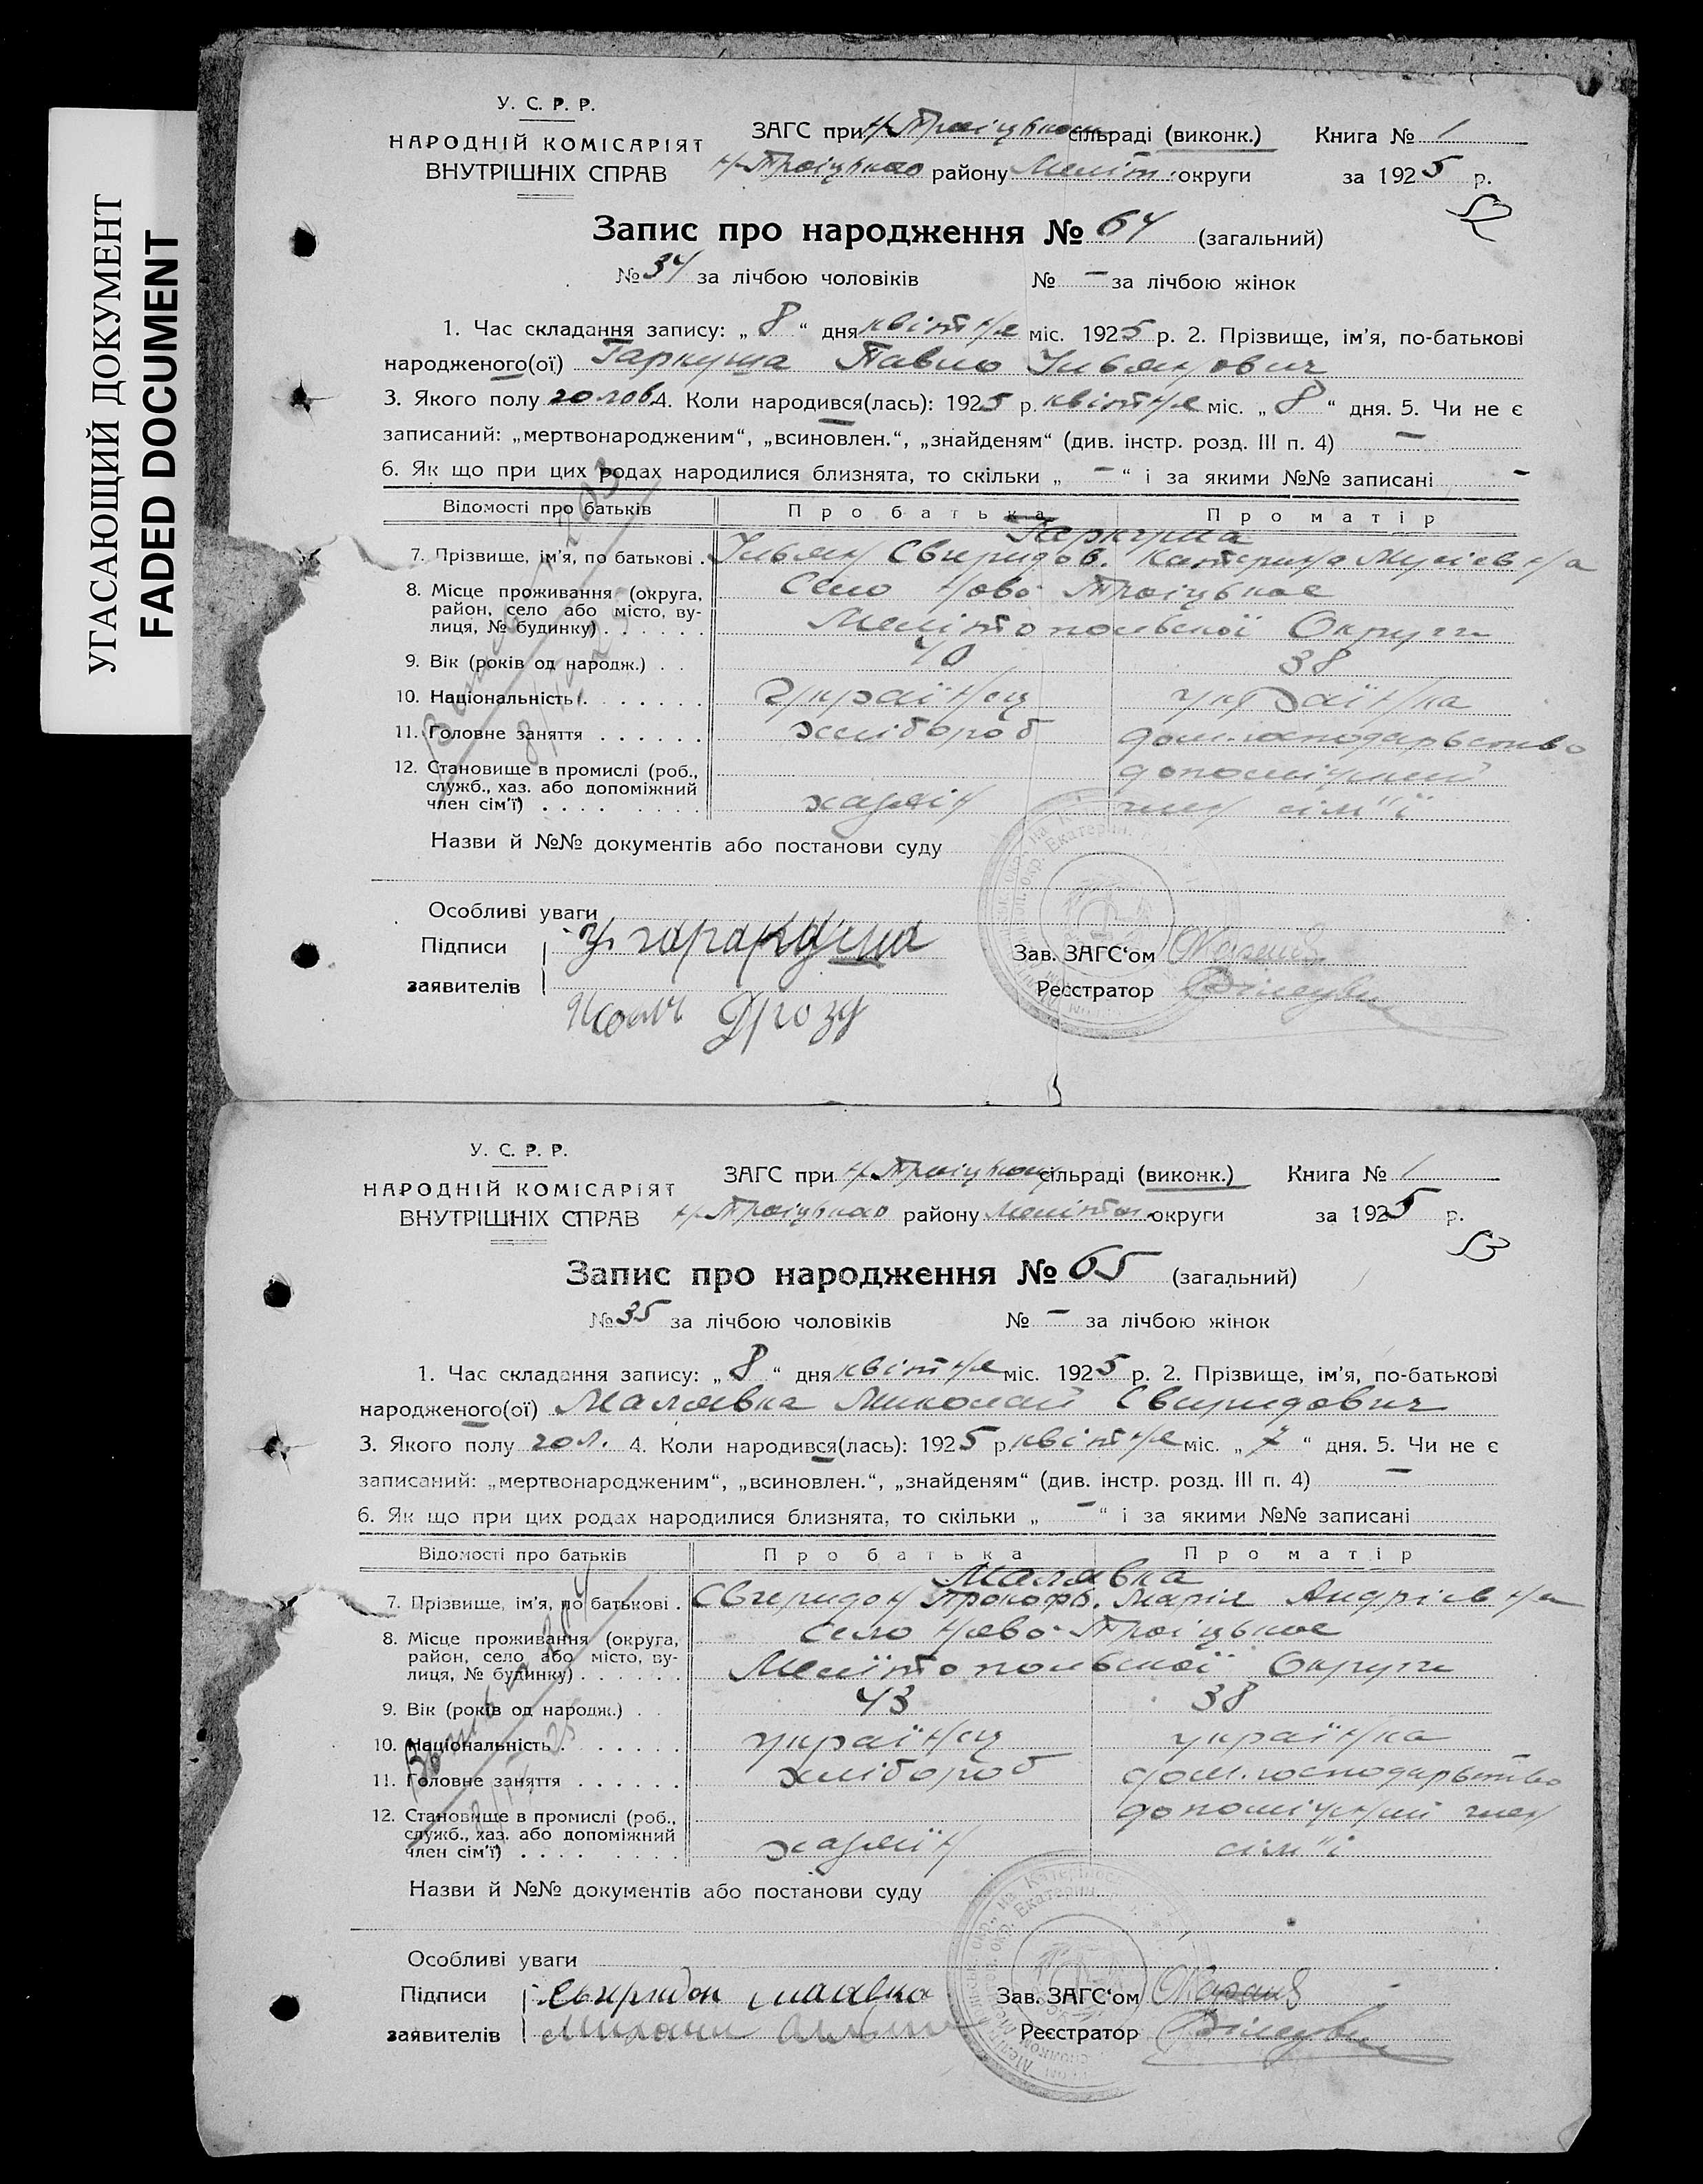 УГАСАЮЩИЙ ДОКУМЕНТ
FADED DOCUMENT
У. С. Р. Р.
НАРОДНІЙ КОМІСАРІЯТ
ВНУТРІШНІХ СПРАВ
ЗАГС при Н-Троіцьком сільраді (виконк.)
Н-Троіцькао району Меліт. округи
Книга № 1
за 1925 р.
52
Запис про народження № 64 (загальний)
№ 34 за лічбою чоловіків № – за лічбою жінок
1. Час складання запису: „ 8 “ дня квітня міс. 1925 р. 2. Прізвище, ім’я, по-батькові
народженого(ої) Гаркуша Павло Ульянович
3. Якого полу чолов. 4. Коли народився(лась): 1925 р. квітня міс. „ 8 “ дня. 5. Чи не є
записаний: „мертвонародженим“, „всиновлен.“, „знайденям“ (див. інстр. розд. III п. 4) –
6. Як що при цих родах народилися близнята, то скільки „ – “ і за якими №№ записані –
Відомості про батьків Про батька Про матір
Гаркуша
7. Прізвище, ім’я, по батькові . Ульян Свиридов. Катерина Мусієвна
8. Місце проживання (округа, район, село або місто, вулиця, № будинку) Село Ново-Троіцькое
Мелітопольскої Округи
9. Вік (років од народж.) . . 40 38
10. Національність українец українка
11. Головне заняття хлібороб дом. господарьство
12. Становище в промислі (роб., служб., хаз. або допоміжний член сім’ї) хазяін допоміжний
член сім"ї
Назви й №№ документів або постанови суду
Особливі уваги
Підписи У. гараркуша
заявителів Дрозд
Зав. ЗАГС‘ом
Реєстратор
У. С. Р. Р.
НАРОДНІЙ КОМІСАРІЯТ
ВНУТРІШНІХ СПРАВ
ЗАГС при Н-Троіцьком сільраді (виконк.)
Н-Троіцькао району Мелітоп. округи
Книга № 1
за 1925 р.
53
Запис про народження № 65 (загальний)
№ 35 за лічбою чоловіків № – за лічбою жінок
1. Час складання запису: „ 8 “ дня квітня міс. 1925 р. 2. Прізвище, ім’я, по-батькові
народженого(ої) Малявка Миколай Свиридович
3. Якого полу чол. 4. Коли народився(лась): 1925 р. квітня міс. „ 7 “ дня. 5. Чи не є
записаний: „мертвонародженим“, „всиновлен.“, „знайденям“ (див. інстр. розд. III п. 4) –
6. Як що при цих родах народилися близнята, то скільки „ – “ і за якими №№ записані
Відомості про батьків Про батька Про матір
Малявка
7. Прізвище, ім’я, по батькові . Свиридон Прокоф. Марія Андрієвна
8. Місце проживання (округа, район, село або місто, вулиця, № будинку) село Ново-Троіцькое
Мелітопольскої Округи
9. Вік (років од народж.) . . 43 38
10. Національність українец українка
11. Головне заняття хлібороб дом. господарьство
12. Становище в промислі (роб., служб., хаз. або допоміжний член сім’ї) хазяїн допоміжний член
сім"ї
Назви й №№ документів або постанови суду
Особливі уваги
Підписи Свиридон малавка
заявителів
Зав. ЗАГС‘ом
Реєстратор